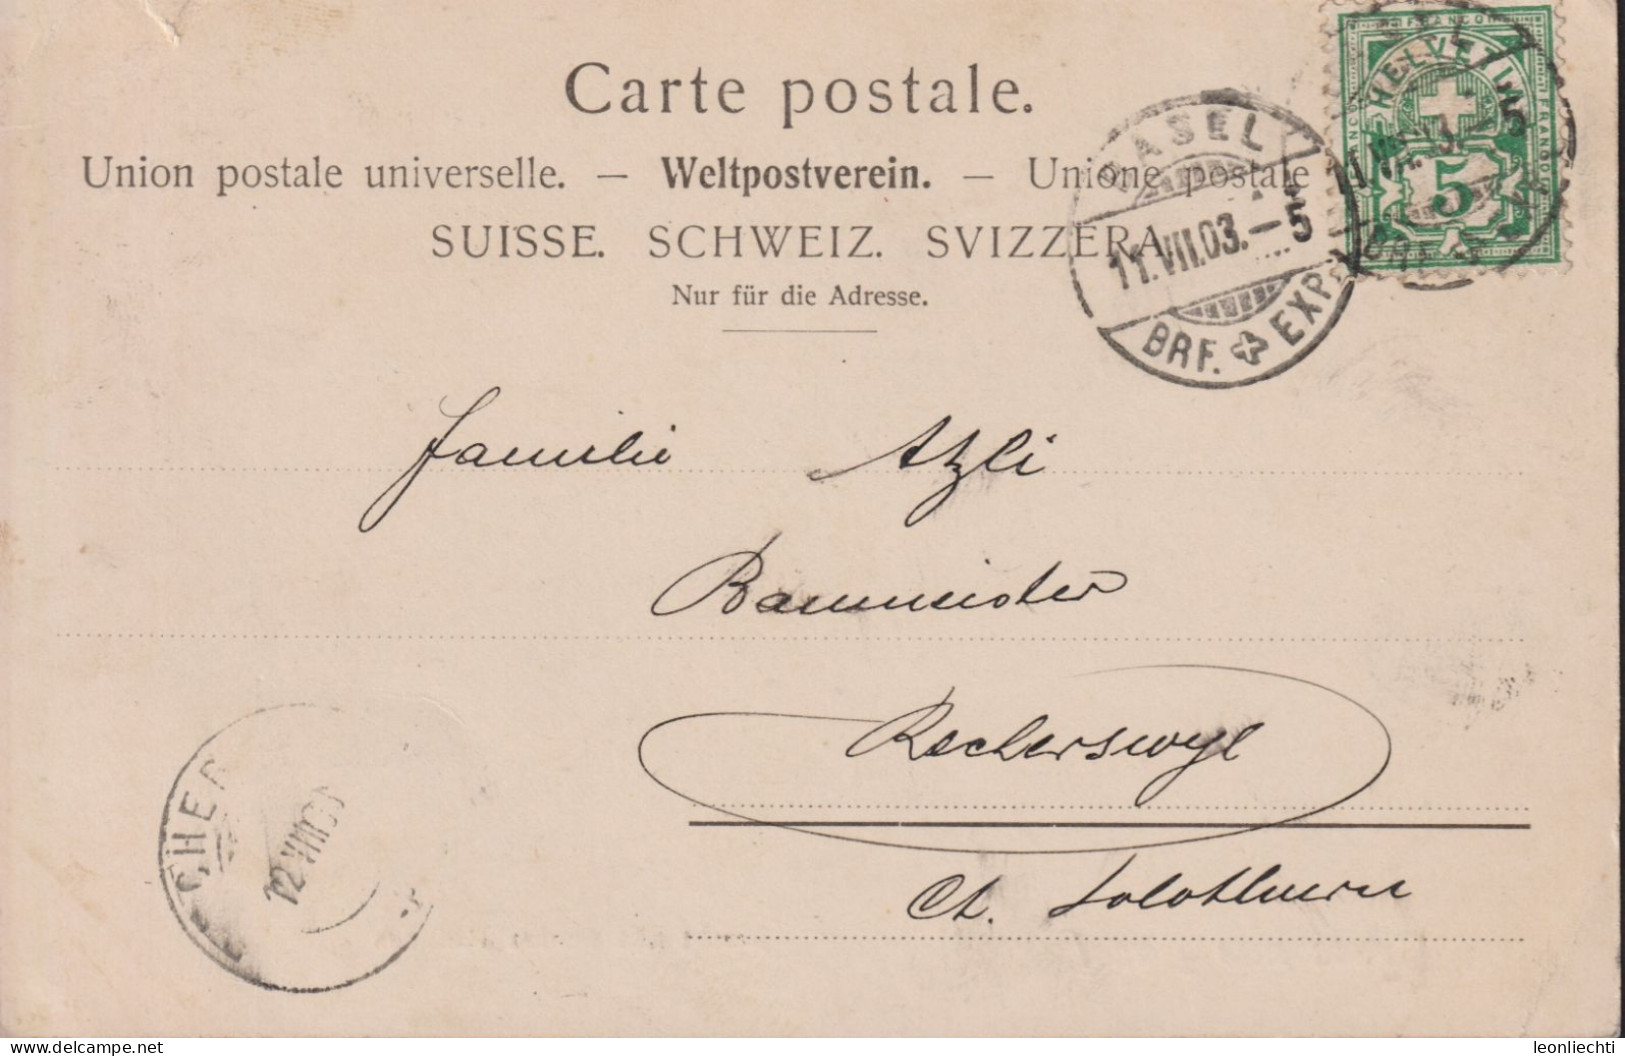 Carte postale.
Union postale universelle. — Weltpostverein. — Unione postale
SUISSE. SCHWEIZ. SVIZZERA
Nur für die Adresse.
FRANCO
FRANCO
HELVETIA
5
BASEL
11.VII.03.–5
BRF. EXP.
11.VII.03.–5
Familie Atzli
Baumeister
Recherswyl
Ct. Solothurn
12.VII.03
leonliechti
delcampe.net